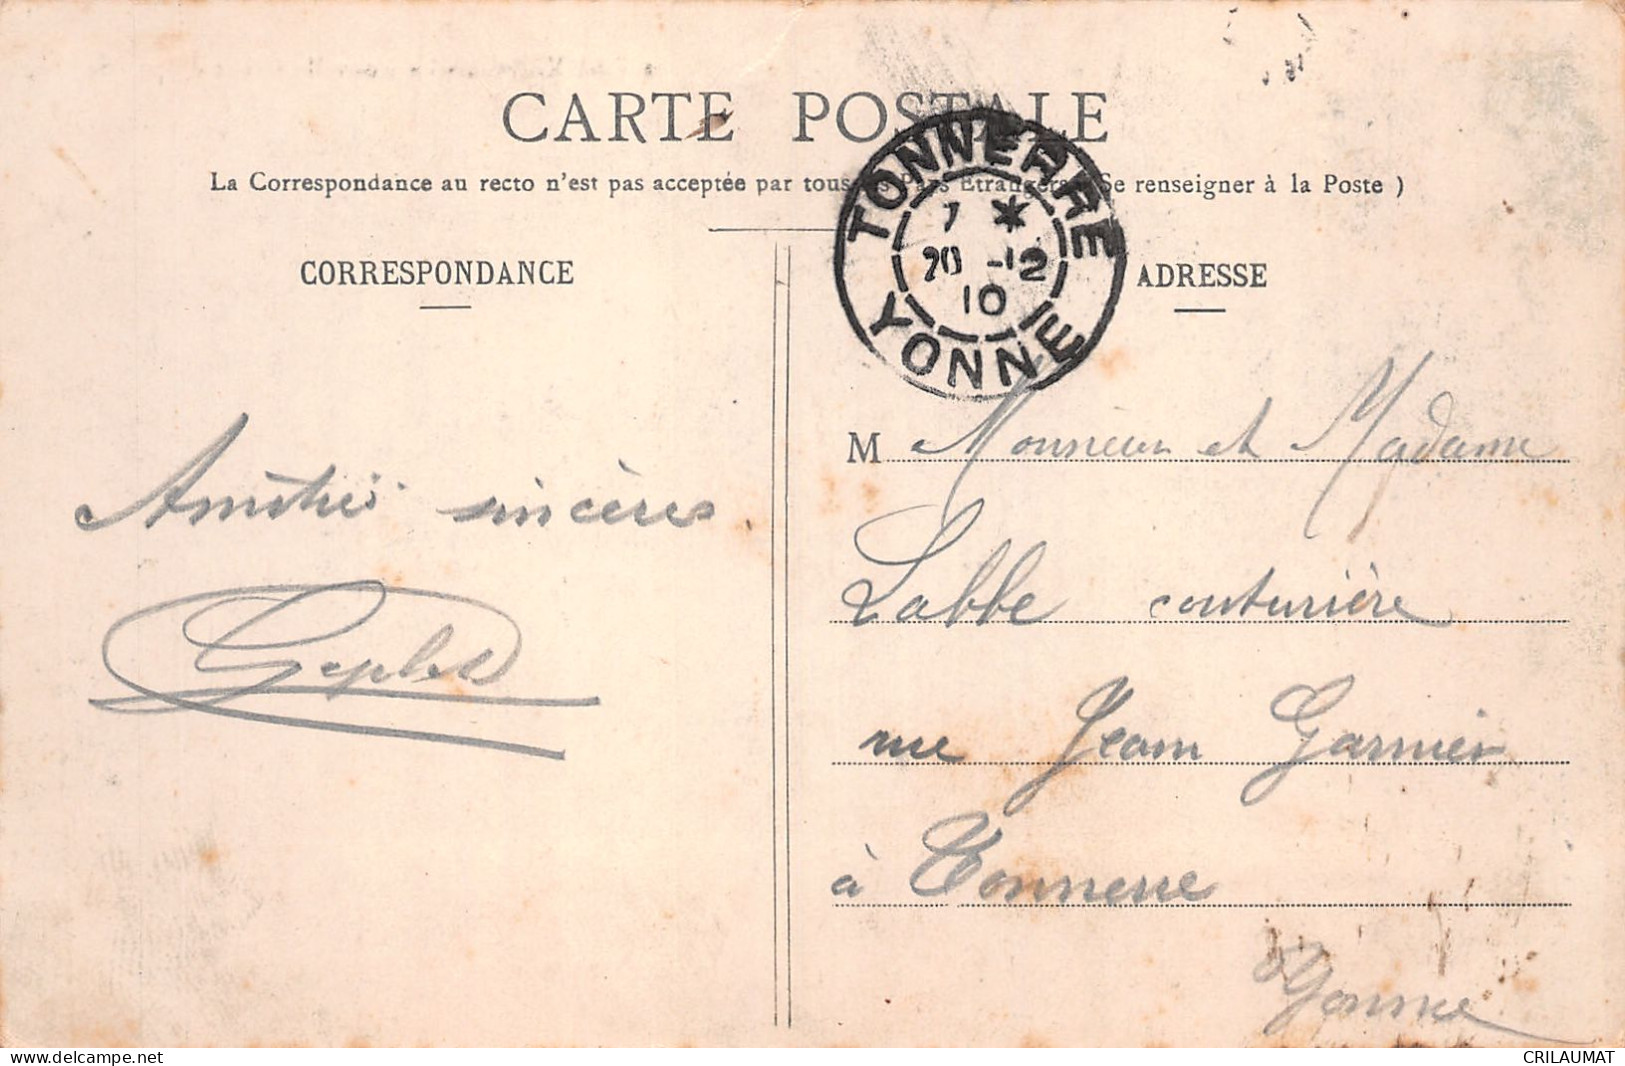 CARTE POSTALE
La Correspondance au recto n'est pas acceptée par tous les Pays Etrangers ( Se renseigner à la Poste )
TONNERRE
7 *
20 -12
10
YONNE
CORRESPONDANCE
ADRESSE
Amitiés sincères
M Monsieur et Madame
Labbe couturière
rue Jean Garnier
à Tonnerre
Yonne
CRILAUMAT